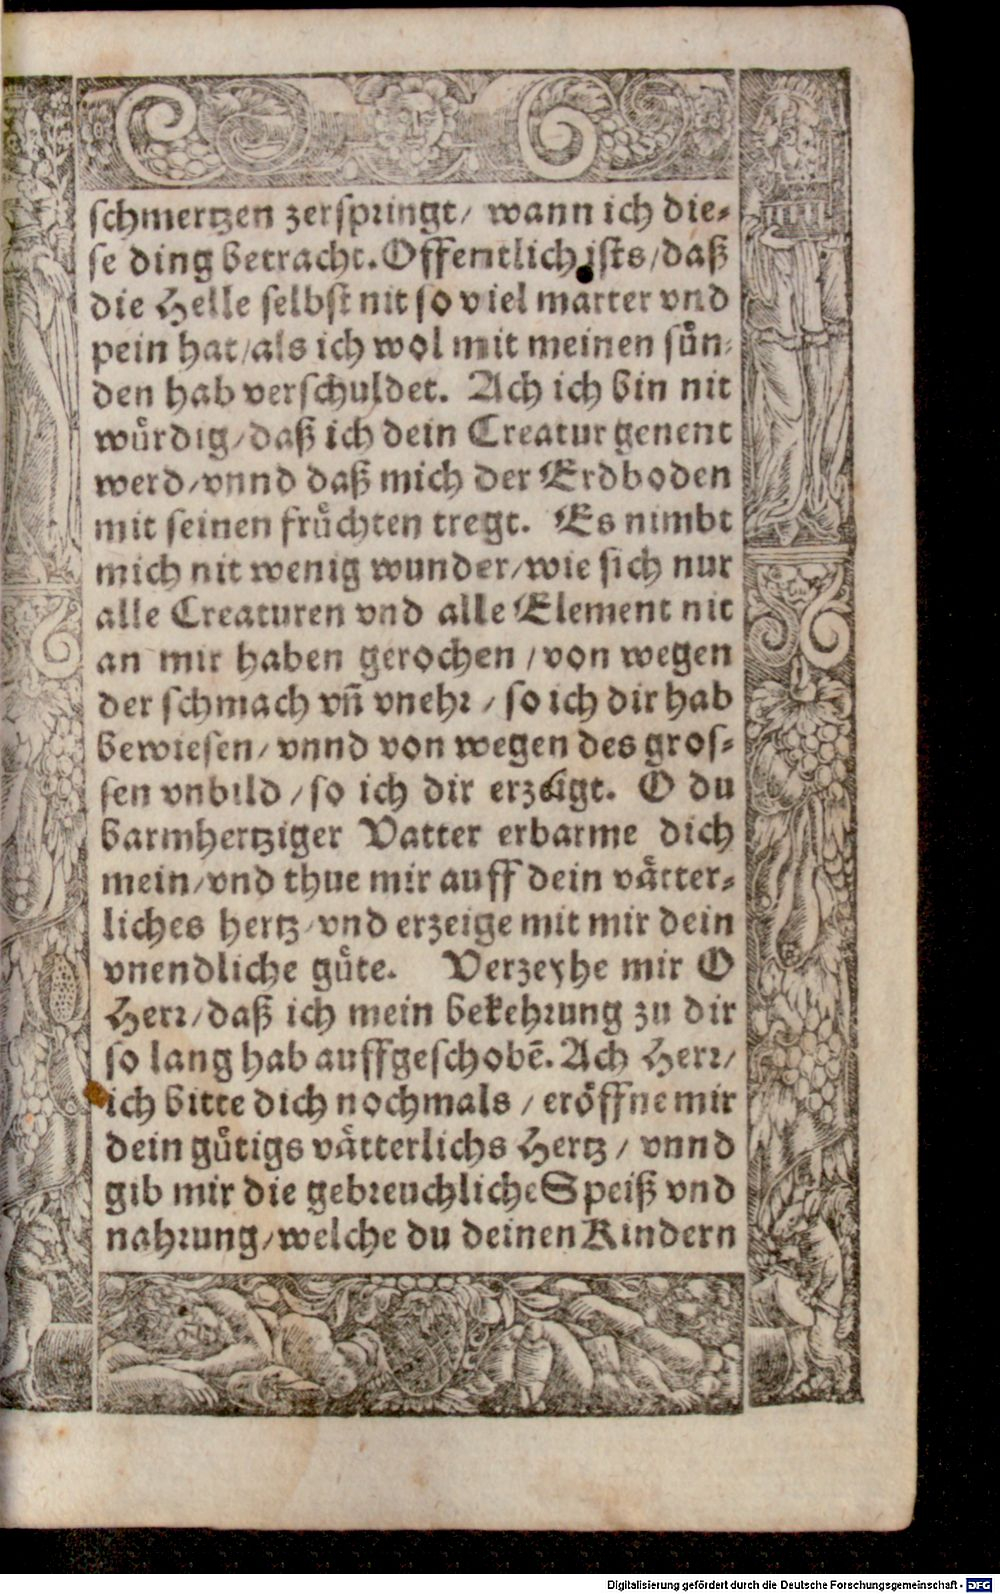 schmertzen zerspringt/ wann ich die-
se ding betracht. Offentlich ists/daß
die Helle selbst nit so viel marter vnd
pein hat/als ich wol mit meinen sün-
den hab verschuldet. Ach ich bin nit
würdig/daß ich dein Creatur genent
werd/vnnd daß mich der Erdboden
mit seinen früchten tregt. Es nimbt
mich nit wenig wunder/wie sich nur
alle Creaturen vnd alle Element nit
an mir haben gerochen /von wegen
der schmach vñ vnehr / so ich dir hab
bewiesen/ vnnd von wegen des gros-
sen vnbild /so ich dir erzeigt. O du
barmhertziger Vatter erbarme dich
mein/vnd thue mir auff dein våtter-
liches hertz/vnd erzeige mit mir dein
vnendliche gůte. Verzeyhe mir O
Herr/daß ich mein bekehrung zu dir
so lang hab auffgeschobē. Ach Herr/
ich bitte dich nochmals / eröffne mir
dein gůtigs våtterlichs Hertz / vnnd
gib mir die gebreuchliche Speiß vnd
nahrung/welche du deinen Kindern
Digitalisierung gefördert durch die Deutsche Forschungsgemeinschaft - DFG